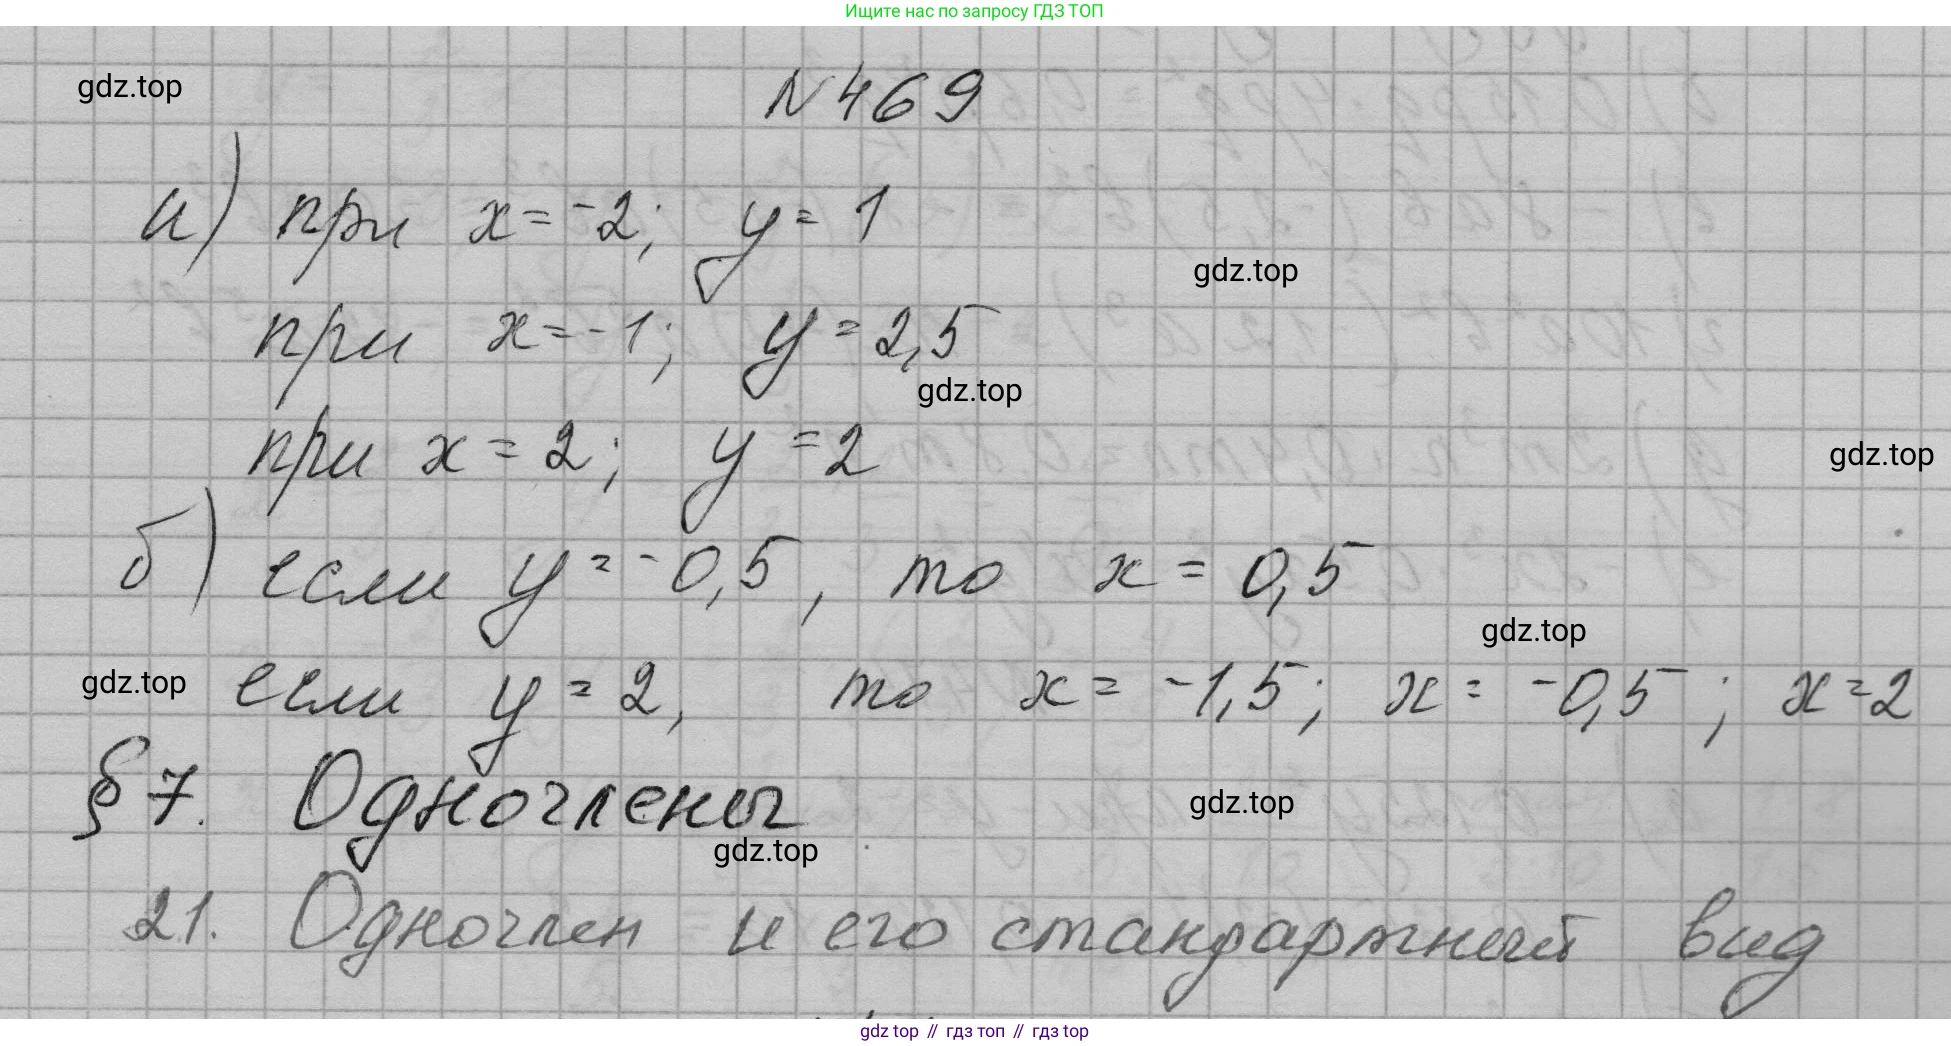 Ищите нас по запросу ГДЗ ТОП
gdz.top
№ 469
а) при x = -2; y = 1
gdz.top
при x = -1; y = 2,5
gdz.top
при x = 2; y = 2
gdz.top
б) если y = -0,5, то x = 0,5
gdz.top
gdz.top
если y = 2, то x = -1,5; x = -0,5; x = 2
§ 7. Одночлены
gdz.top
gdz.top
21. Одночлен и его стандартный вид
gdz top // гдз топ // гдз top